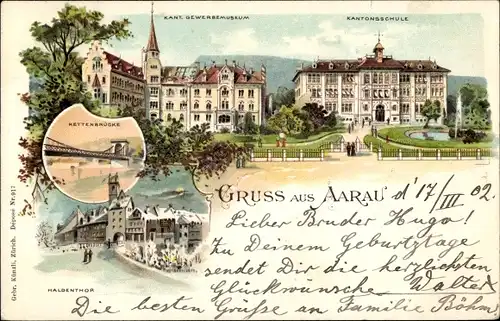 KANT. GEWERBEMUSEUM
KANTONSSCHULE
KETTENBRÜCKE
GRUSS AUS AARAU d' 17/III 02
Lieber Bruder Hugo!
Zu Deinem Geburtstage
sendet Dir die herzlichsten
HALDENTHOR
Glückwunsche Walter
Die besten Grüße an Familie Böhm
Gebr. Künzli, Zürich. Déposé Nr. 917